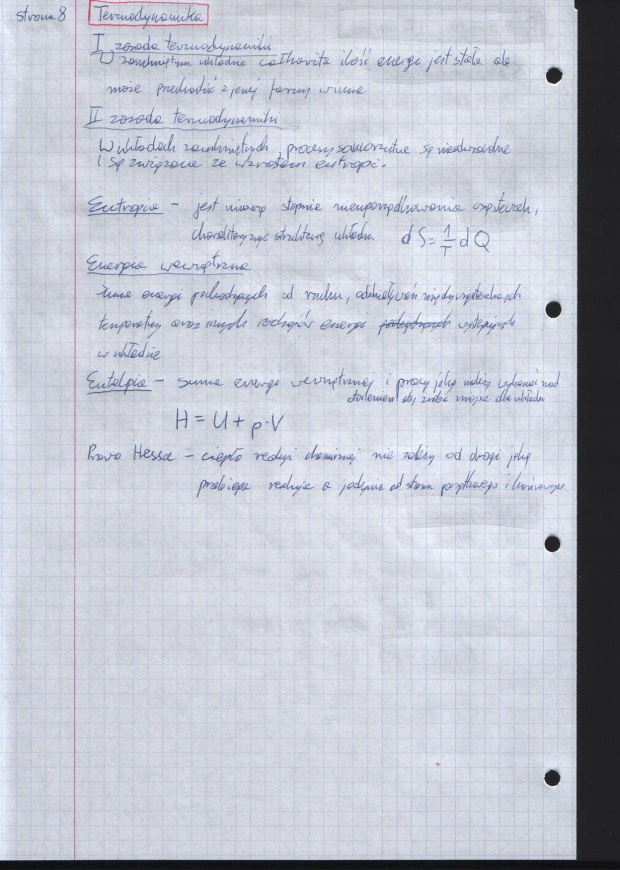 strona 8
Termodynamika
I zasada termodynamiki
W zamkniętym układzie całkowita ilość energii jest stała ale
może przechodzić z jenej formy w inne
II zasada termodynamiki
W układach zamkniętych, procesy samorzutne są nieodwracalne
i są związane ze wzrostem entropi.
Entropia - jest miarą stopnia nieuporządkowania cząsteczek,
charakteryzuje strukturę układu. dS = 1/T dQ
Energia wewnętrzna
Suma energi pochodzących od ruchu, oddziaływań międzycząsteczkowych
temperatury oraz innych rodzajów energi pochodzących występujących
w układzie
Entalpia - suma energi wewnętrznej i pracy jaką należy wykonać nad
otoczeniem aby zrobić miejsce dla układu
H = U + p·V
Prawo Hessa - ciepło reakcji chemicznej nie zależy od drogi jaką
przebiega reakcja a jedynie od stanu początkowego i końcowego